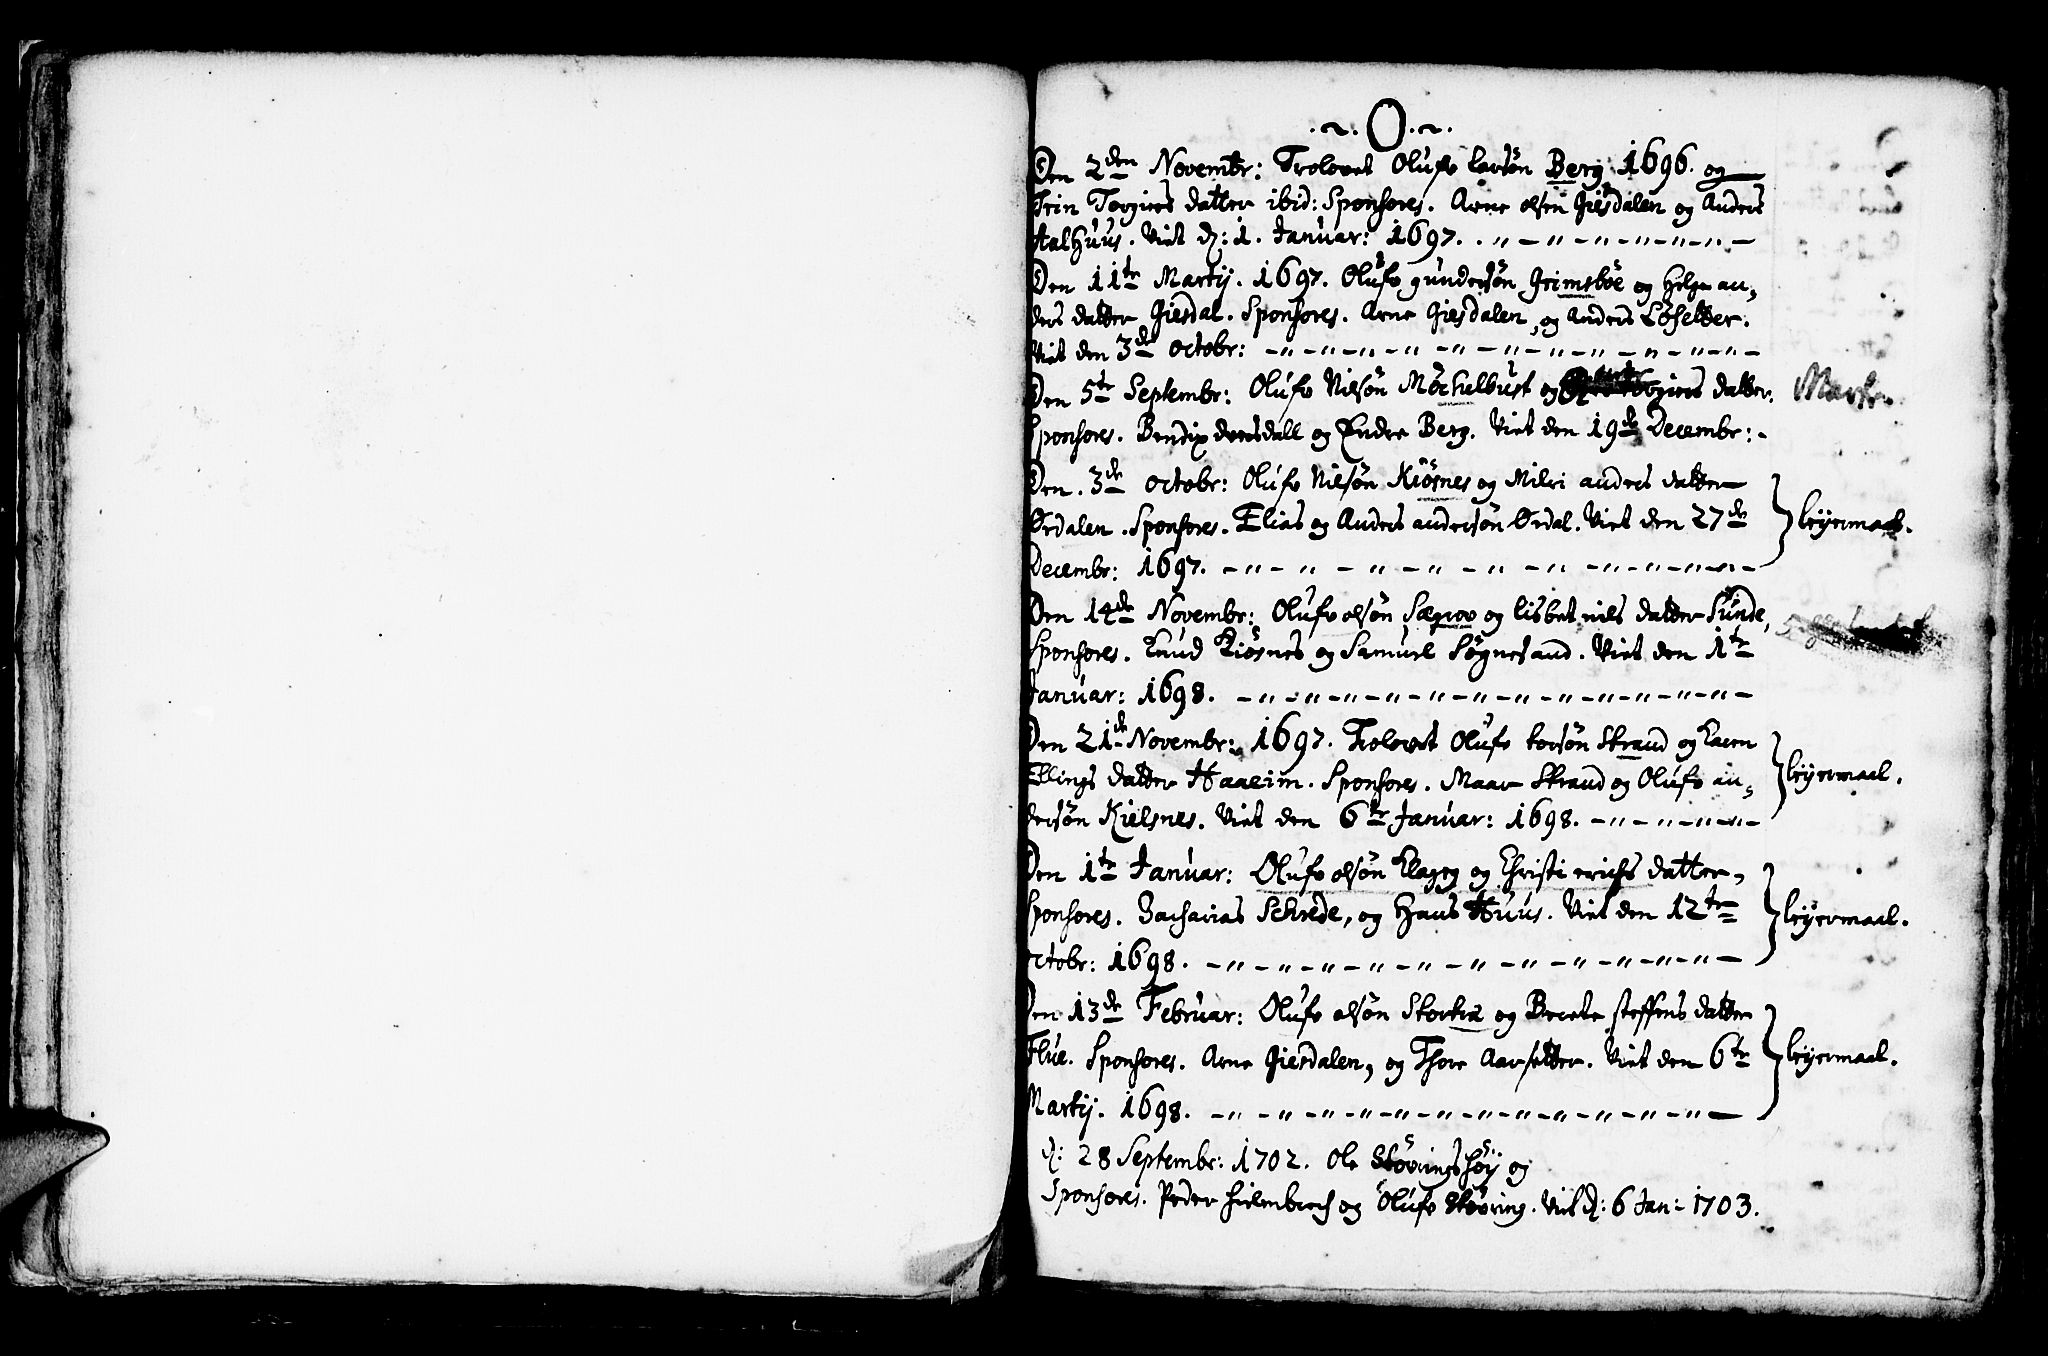 .~. O .~.
Den 2den Novembr: Trolovet Oluf larsön Berg 1696. og
Trin Torgiers datter ibid: Sponsores. Arne olsen Giesdalen og Anders
Aalhuus. Viet d: 1. Januar: 1697.
Den 11te Martij. 1697. Oluf gundersön Grimsböe og Helge an,
ders datter Giesdal. Sponsores. Arne Giesdalen, og Anders Löseter.
Viet den 3de octobr:
Den 5te Septembr: Oluf Nilsön Möchelbust og Torgiers datter. Marte
Sponsores. Bendix dvergsdall og Endre Berg. Viet den 19de Decembr:
Den. 3de octobr: Oluf Nilsön Kiösnes og Milri anders datter
Ördalen. Sponsores. Elias og Anders andersön Ördal. Viet den 27de leyermaal.
Decembr: 1697.
Den 14de Novembr: Oluf olsön Sægrov og lisbet nils datter Sunde,
Sponsores. Knud Kiösnes og Samuel Sögnesand. Viet den 1te
Januar: 1698.
Den 21de Novembr: 1697. Trolovet Oluf torsön Strand og Karen
Ellings datter Haaeim. Sponsores. Maar Strand og Oluf an, leyermaal.
dersön Kielsnes. Viet den 6te Januar: 1698.
Den 1te Januar: Oluf olsön Klageg og Christi erichs datter,
Sponsores. Zacharias Schrede, og Hans Huus. Viet den 12te leyermaal.
octobr: 1698.
Den 13de Februar: Oluf olsön Stortræ og Berete steffens datter
Flue. Sponsores. Arne Giesdalen, og Thore Aarsetter. Viet den 6te leyermaal.
Martij. 1698.
d: 28 Septembr: 1702. Ole Stövringshöy og
Sponsores. Peder og Oluf Stövring. Viet d: 6 Jan: 1703.